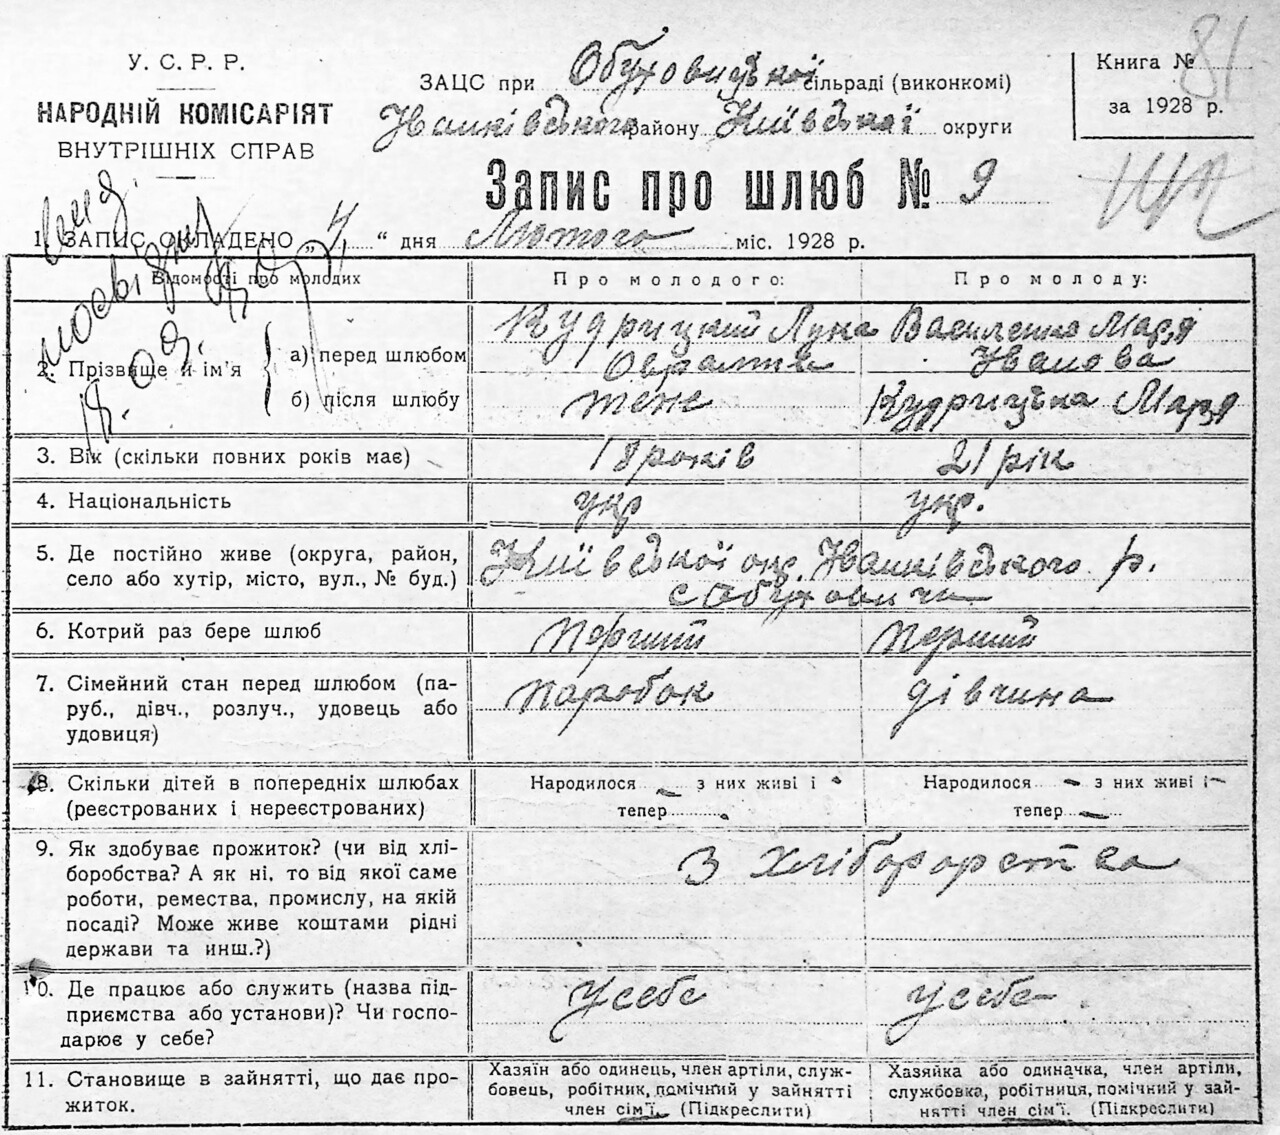 У. С. Р. Р.
НАРОДНІЙ КОМІСАРІЯТ
ВНУТРІШНІХ СПРАВ
ЗАЦС при Обуховицької сільраді (виконкомі)
Іванківського району Київської округи
Книга № 81
за 1928 р.
Запис про шлюб № 9
1. ЗАПИС СКЛАДЕНО „4“ дня Лютого міс. 1928 р.
Відомості про молодих
Про молодого:
Про молоду:
2. Прізвище й ім'я
а) перед шлюбом
Кудрицкий Лука
Василенко Марія
Іванова
б) після шлюбу
теж
Кудрицька Марія
3. Вік (скільки повних років має)
18 років
21 рік
4. Національність
укр
укр.
5. Де постійно живе (округа, район,
село або хутір, місто, вул., № буд.)
Київської окр. Іванківського р.
с Обуховичи
6. Котрий раз бере шлюб
перший
перший
7. Сімейний стан перед шлюбом (па-
руб., дівч., розлуч., удовець або
удовиця)
паробок
дівчина
8. Скільки дітей в попередніх шлюбах
(реєстрованих і нереєстрованих)
Народилося — з них живі і -
тепер -
Народилося — з них живі і -
тепер —
9. Як здобуває прожиток? (чи від хлі-
боробства? А як ні, то від якої саме
роботи, ремества, промислу, на якій
посаді? Може живе коштами рідні
держави та инш.?)
З хліборорства
10. Де працює або служить (назва під-
приємства або установи)? Чи госпо-
дарює у себе?
у себе
у себе
11. Становище в зайнятті, що дає про-
житок.
Хазяїн або одинець, член артіли, служ-
бовець, робітник, помічний у зайнятті
член сім'ї. (Підкреслити)
Хазяйка або одиначка, член артіли,
службовка, робітниця, помічний у зай-
нятті член сім'ї. (Підкреслити)